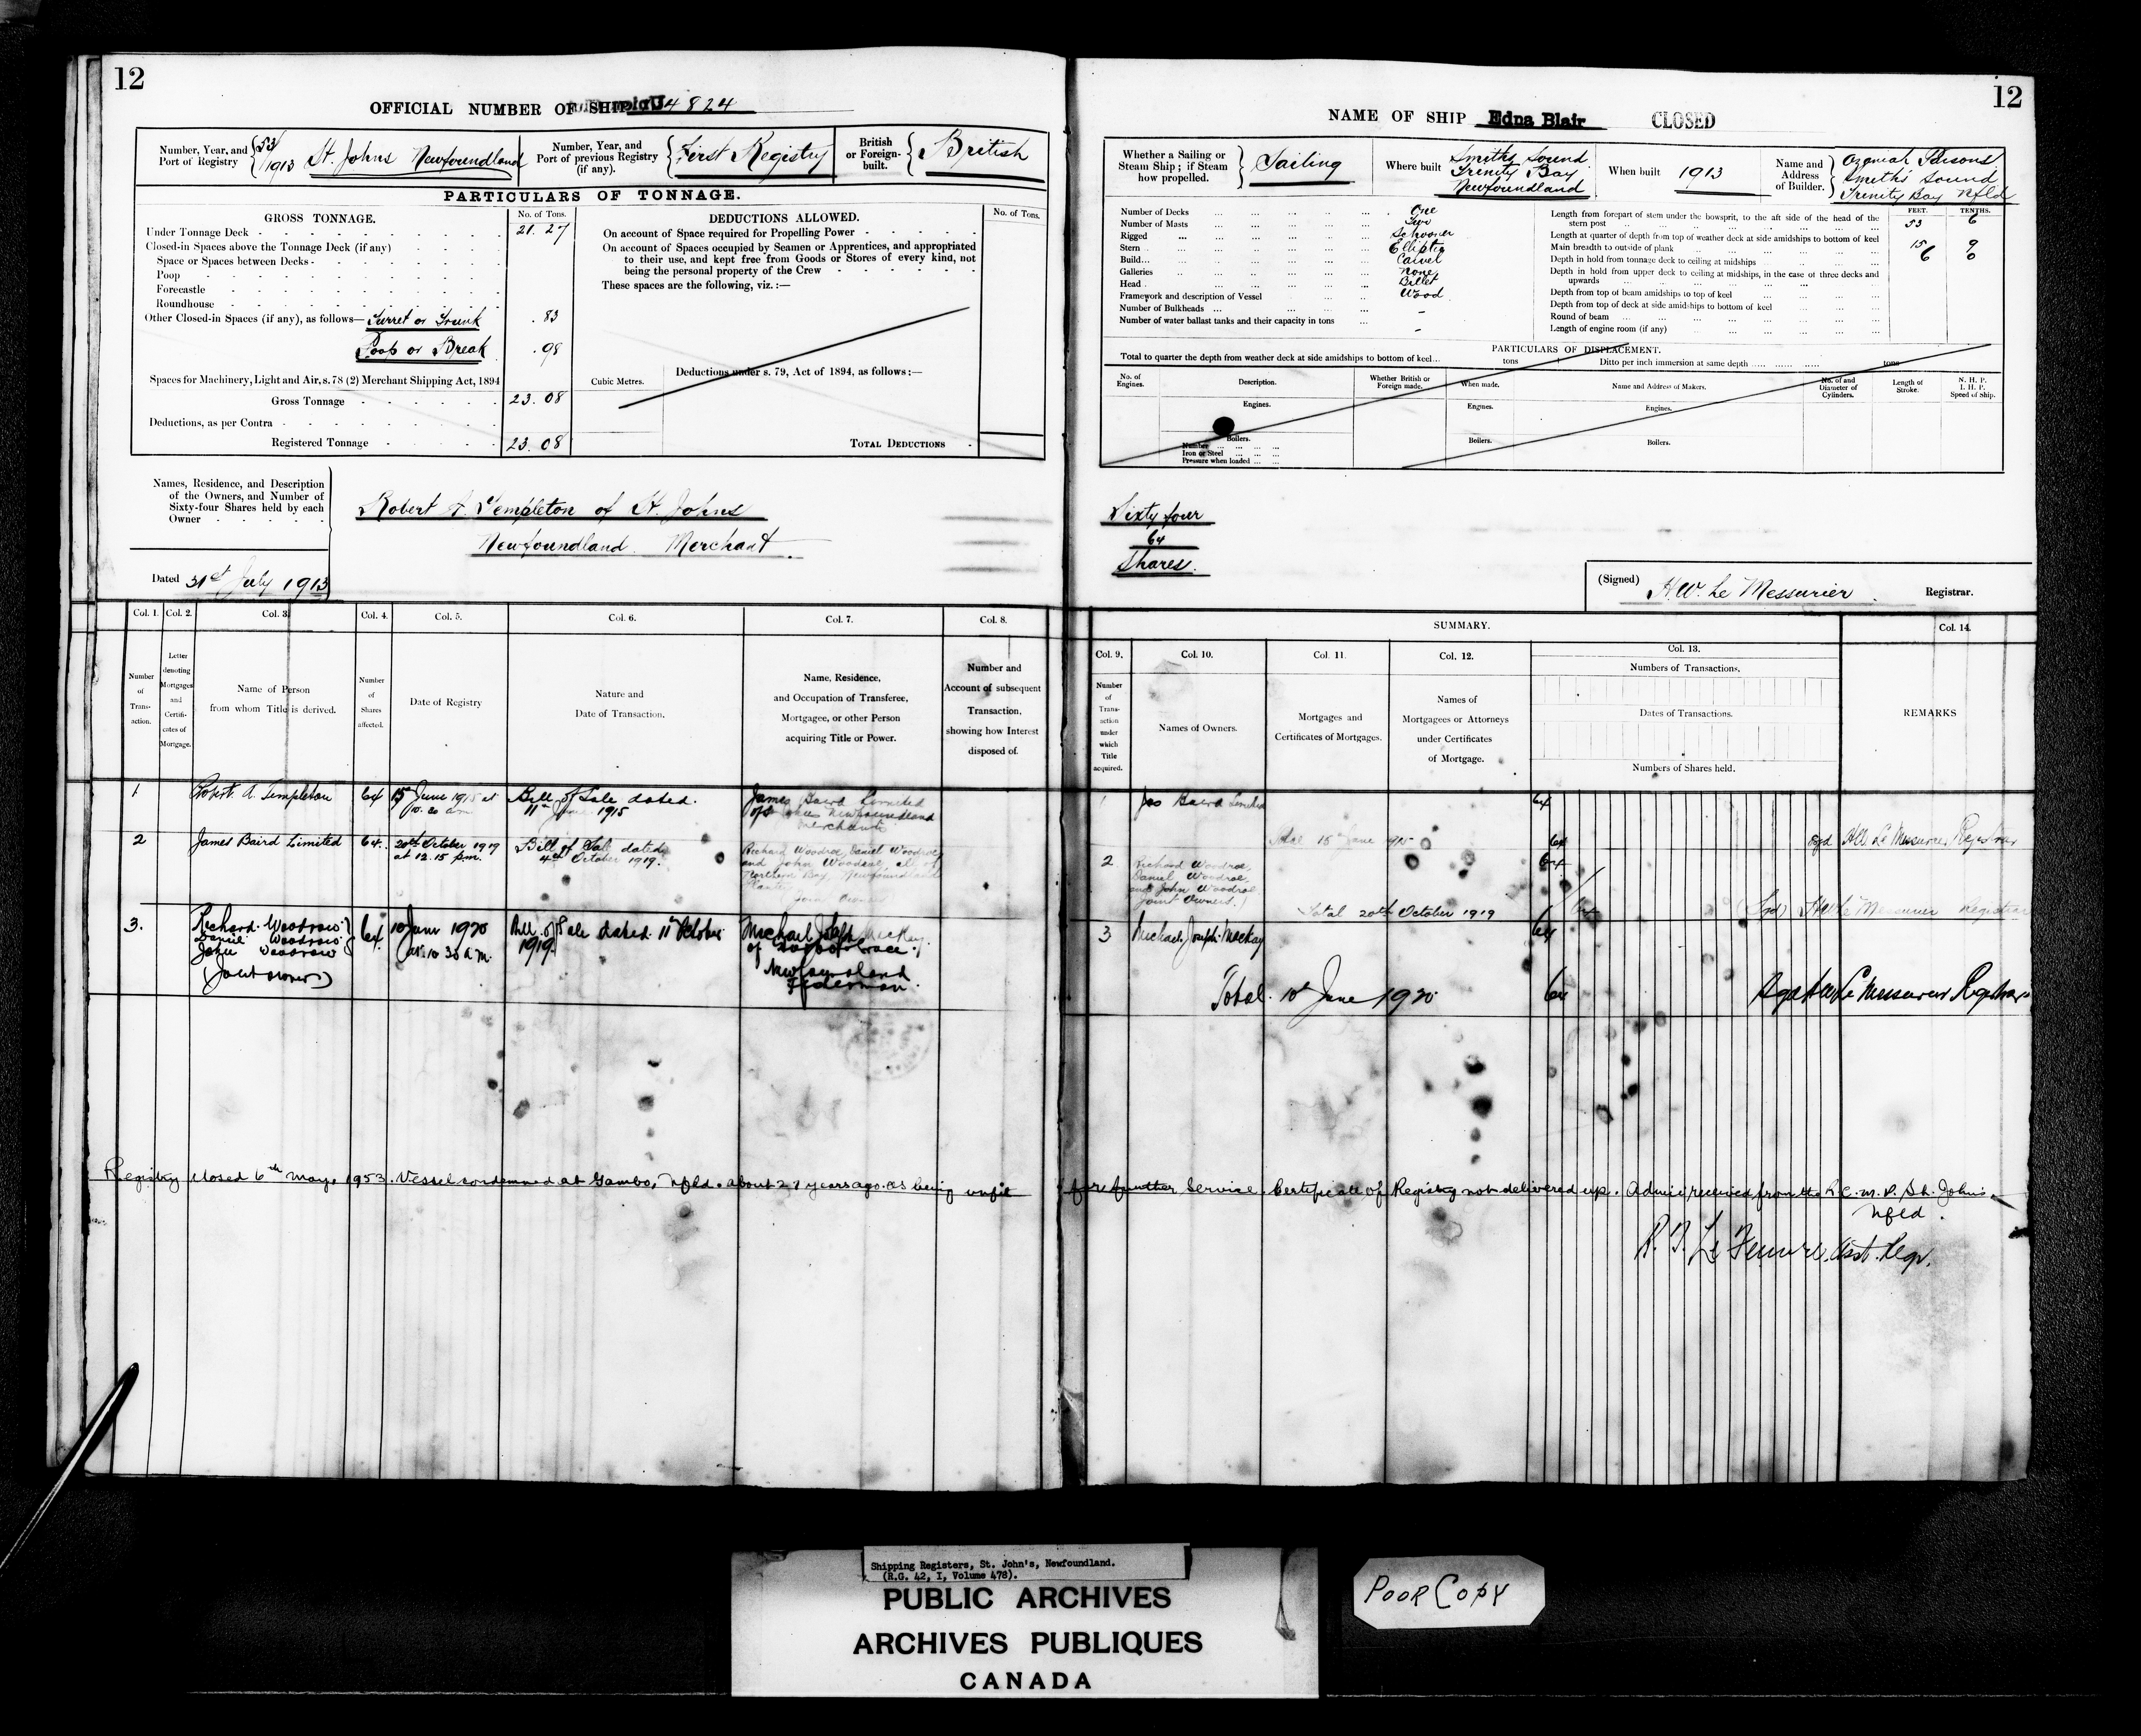 12
OFFICIAL NUMBER OF SHIP 4824
Number, Year, and Port of Registry 53/1913 St. Johns Newfoundland
Number, Year, and Port of previous Registry (if any). First Registry
British or Foreign-built. British
PARTICULARS OF TONNAGE.
GROSS TONNAGE. No. of Tons.
Under Tonnage Deck 21.27
Closed-in Spaces above the Tonnage Deck (if any)
Space or Spaces between Decks
Poop
Forecastle
Roundhouse
Other Closed-in Spaces (if any), as follows— Turret or Trunk .83
Poop or Break .98
Spaces for Machinery, Light and Air, s. 78 (2) Merchant Shipping Act, 1894
Gross Tonnage 23.08
Deductions, as per Contra
Registered Tonnage 23.08
DEDUCTIONS ALLOWED. No. of Tons.
On account of Space required for Propelling Power
On account of Spaces occupied by Seamen or Apprentices, and appropriated
to their use, and kept free from Goods or Stores of every kind, not
being the personal property of the Crew
These spaces are the following, viz.:—
Cubic Metres.
Deductions under s. 79, Act of 1894, as follows:—
TOTAL DEDUCTIONS
Names, Residence, and Description
of the Owners, and Number of
Sixty-four Shares held by each
Owner
Robert A. Templeton of St. Johns
Newfoundland Merchant
Dated 31st July 1913
Col. 1. Col. 2. Col. 3. Col. 4. Col. 5. Col. 6. Col. 7. Col. 8.
Number of Transaction.
Letter denoting Mortgages and Certificates of Mortgage.
Name of Person from whom Title is derived.
Number of Shares affected.
Date of Registry
Nature and Date of Transaction.
Name, Residence, and Occupation of Transferee, Mortgagee, or other Person acquiring Title or Power.
Number and Account of subsequent Transaction, showing how Interest disposed of.
1 Robert A. Templeton 64 15 June 1915 at 10.20 am Bill of Sale dated 11th June 1915 James Baird Limited of St Johns Newfoundland Merchants
2 James Baird Limited 64 20th October 1919 at 12.15 p.m. Bill of Sale dated 4th October 1919. Richard Woodroe, Daniel Woodroe and John Woodroe, all of Northern Bay, Newfoundland Planters (Joint Owners)
3. Richard Woodrow Daniel Woodrow John Woodrow (Joint owners) 64 10 June 1920 at 10 30 a.m. Bill of Sale dated 11th October 1919 Michael Joseph Mackay of Harbor Grace, Newfoundland Fisherman.
Registry closed 6th May, 1953. Vessel condemned at Gambo, Nfld. about 27 years ago as being unfit
12
NAME OF SHIP Edna Blair CLOSED
Whether a Sailing or Steam Ship; if Steam how propelled. Sailing
Where built Smiths Sound Trinity Bay Newfoundland
When built 1913
Name and Address of Builder. Parsons Smiths Sound Trinity Bay Nfld
Number of Decks One
Number of Masts Two
Rigged Schooner
Stern Elliptic
Build Carvel
Galleries None
Head Billet
Framework and description of Vessel Wood
Number of Bulkheads -
Number of water ballast tanks and their capacity in tons -
FEET. TENTHS.
Length from forepart of stem under the bowsprit, to the aft side of the head of the stern post 53 6
Length at quarter of depth from top of weather deck at side amidships to bottom of keel
Main breadth to outside of plank 15 9
Depth in hold from tonnage deck to ceiling at midships 6 0
Depth in hold from upper deck to ceiling at midships, in the case of three decks and upwards
Depth from top of beam amidships to top of keel
Depth from top of deck at side amidships to bottom of keel
Round of beam
Length of engine room (if any)
PARTICULARS OF DISPLACEMENT.
Total to quarter the depth from weather deck at side amidships to bottom of keel tons Ditto per inch immersion at same depth tons
No. of Engines. Description. Whether British or Foreign made. When made. Name and Address of Makers. No. of and Diameter of Cylinders. Length of Stroke. N. H. P. I. H. P. Speed of Ship.
Engines. Engines. Engines.
Boilers. Boilers. Boilers.
Number
Iron or Steel
Pressure when loaded
Sixty four
64
Shares.
(Signed) H.W. Le Messurier Registrar.
SUMMARY.
Col. 9. Col. 10. Col. 11. Col. 12. Col. 13. Col. 14.
Number of Transaction under which Title acquired.
Names of Owners.
Mortgages and Certificates of Mortgages.
Names of Mortgagees or Attorneys under Certificates of Mortgage.
Numbers of Transactions.
Dates of Transactions.
Numbers of Shares held.
REMARKS
1 Jas Baird Limited 64
Total 15 June 1915 64 Sgd HW Le Messurier Registrar
2 Richard Woodroe, Daniel Woodroe, and John Woodroe Joint Owners.) 64
Total 20th October 1919 64 (Sgd) HW Le Messurier Registrar
3 Michael Joseph Mackay 64
Total 10th June 1920 64 Le Messurier Registrar
for further service. Certificate of Registry not delivered up. Advice received from the R.C.M.P. St. Johns
Nfld.
Asst. Regr.
Shipping Registers, St. John's, Newfoundland.
(R.G. 42, I, Volume 478).
PUBLIC ARCHIVES
ARCHIVES PUBLIQUES
CANADA
POOR COPY